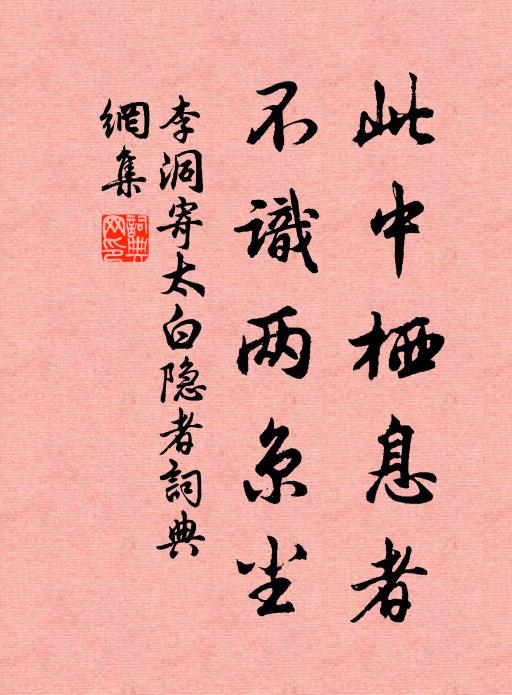 此中栖息者
不識两京尘
李洞寄太白隐者詞典
網集
詞典
网印